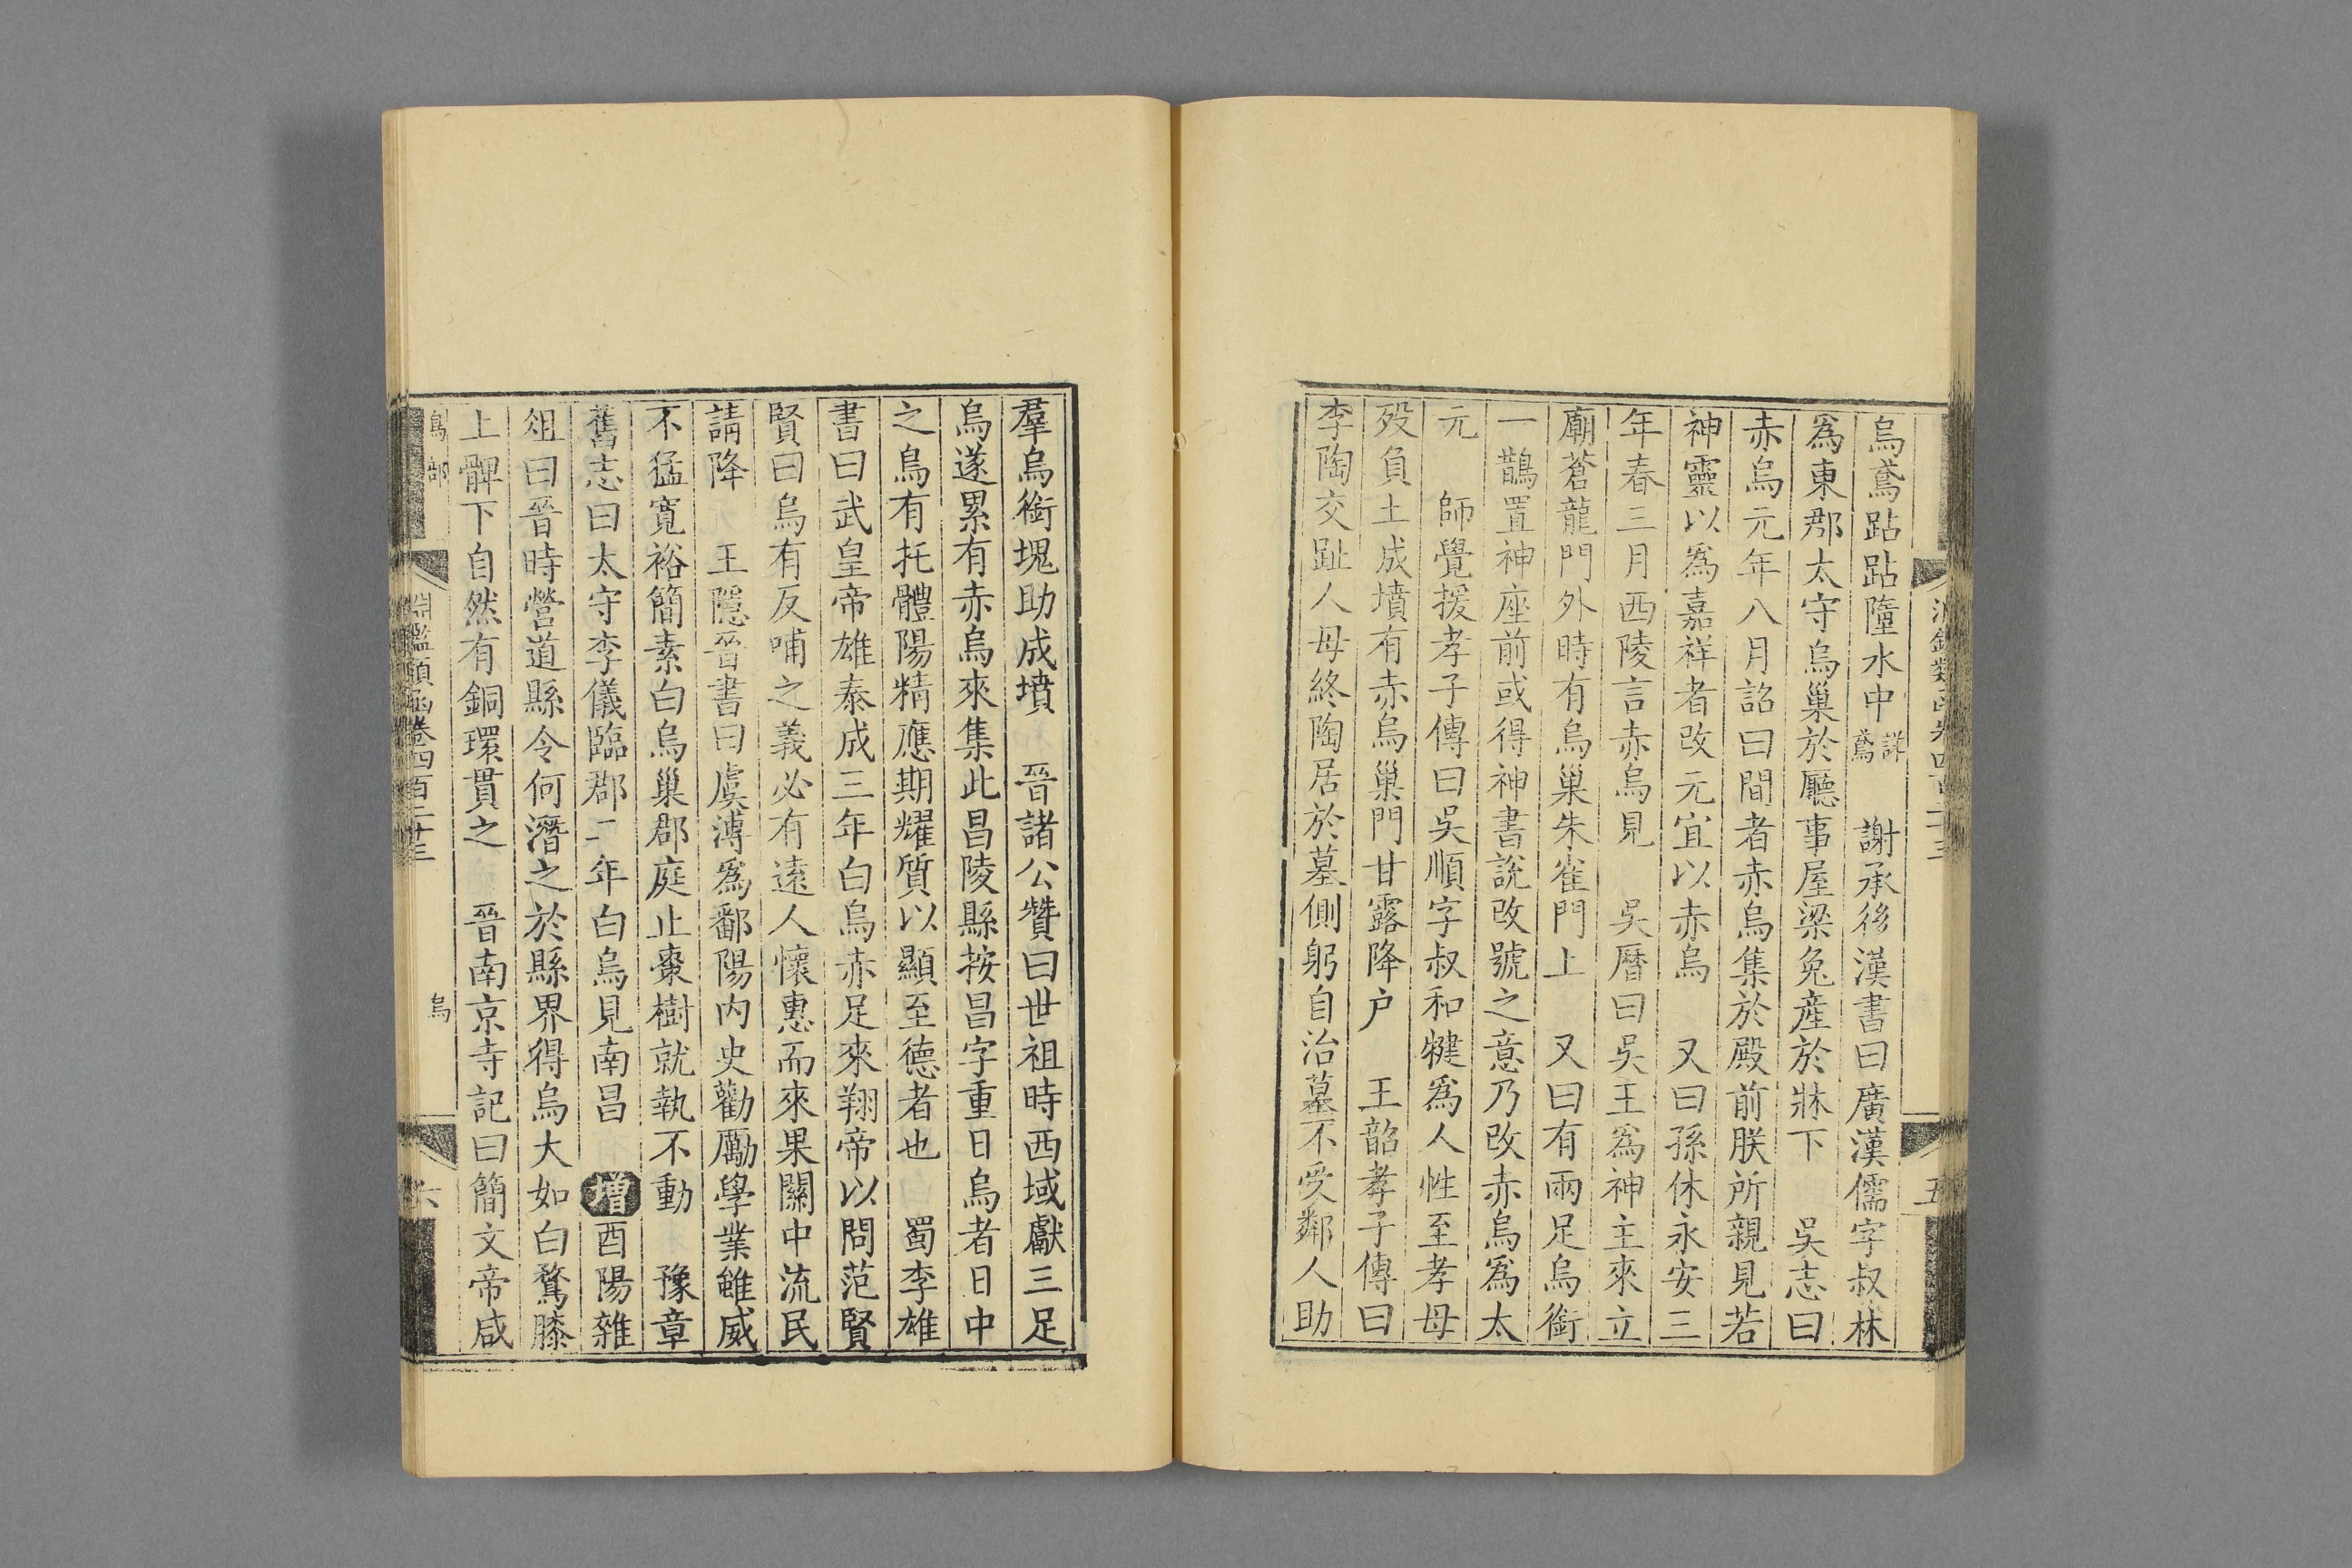 烏鳶跕跕墮水中 詳鳶 謝承後漢書曰廣漢儒字叔林
爲東郡太守烏巢於廳事屋梁兔產於牀下 吳志曰
赤烏元年八月詔曰間者赤烏集於殿前朕所親見若
神靈以爲嘉祥者改元宜以赤烏 又曰孫休永安三
年春三月西陵言赤烏見 吳曆曰吳王爲神主來立
廟蒼龍門外時有烏巢朱雀門上 又曰有兩足烏銜
一鵲置神座前或得神書說改號之意乃改赤烏爲太
元 師覺援孝子傳曰吳順字叔和犍爲人性至孝母
歿負土成墳有赤烏巢門甘露降户 王韶孝子傳曰
李陶交趾人母終陶居於墓側躬自治墓不受鄰人助
羣烏銜塊助成墳 晉諸公贊曰世祖時西域獻三足
烏遂累有赤烏來集此昌陵縣按昌字重日烏者日中
之鳥有托體陽精應期耀質以顯至德者也 蜀李雄
書曰武皇帝雄泰成三年白烏赤足來翔帝以問范賢
賢曰烏有反哺之義必有遠人懷惠而來果關中流民
請降 王隱晉書曰虞溥爲鄱陽内史勸勵學業雖威
不猛寬裕簡素白烏巢郡庭止棗樹就執不動 豫章
舊志曰太守李儀臨郡二年白烏見南昌 增 酉陽雜
俎曰晉時營道縣令何潛之於縣界得烏大如白鷺膝
上髀下自然有銅環貫之 晉南京寺記曰簡文帝咸
鳥部 淵鑑類函卷四百二十三 烏 六